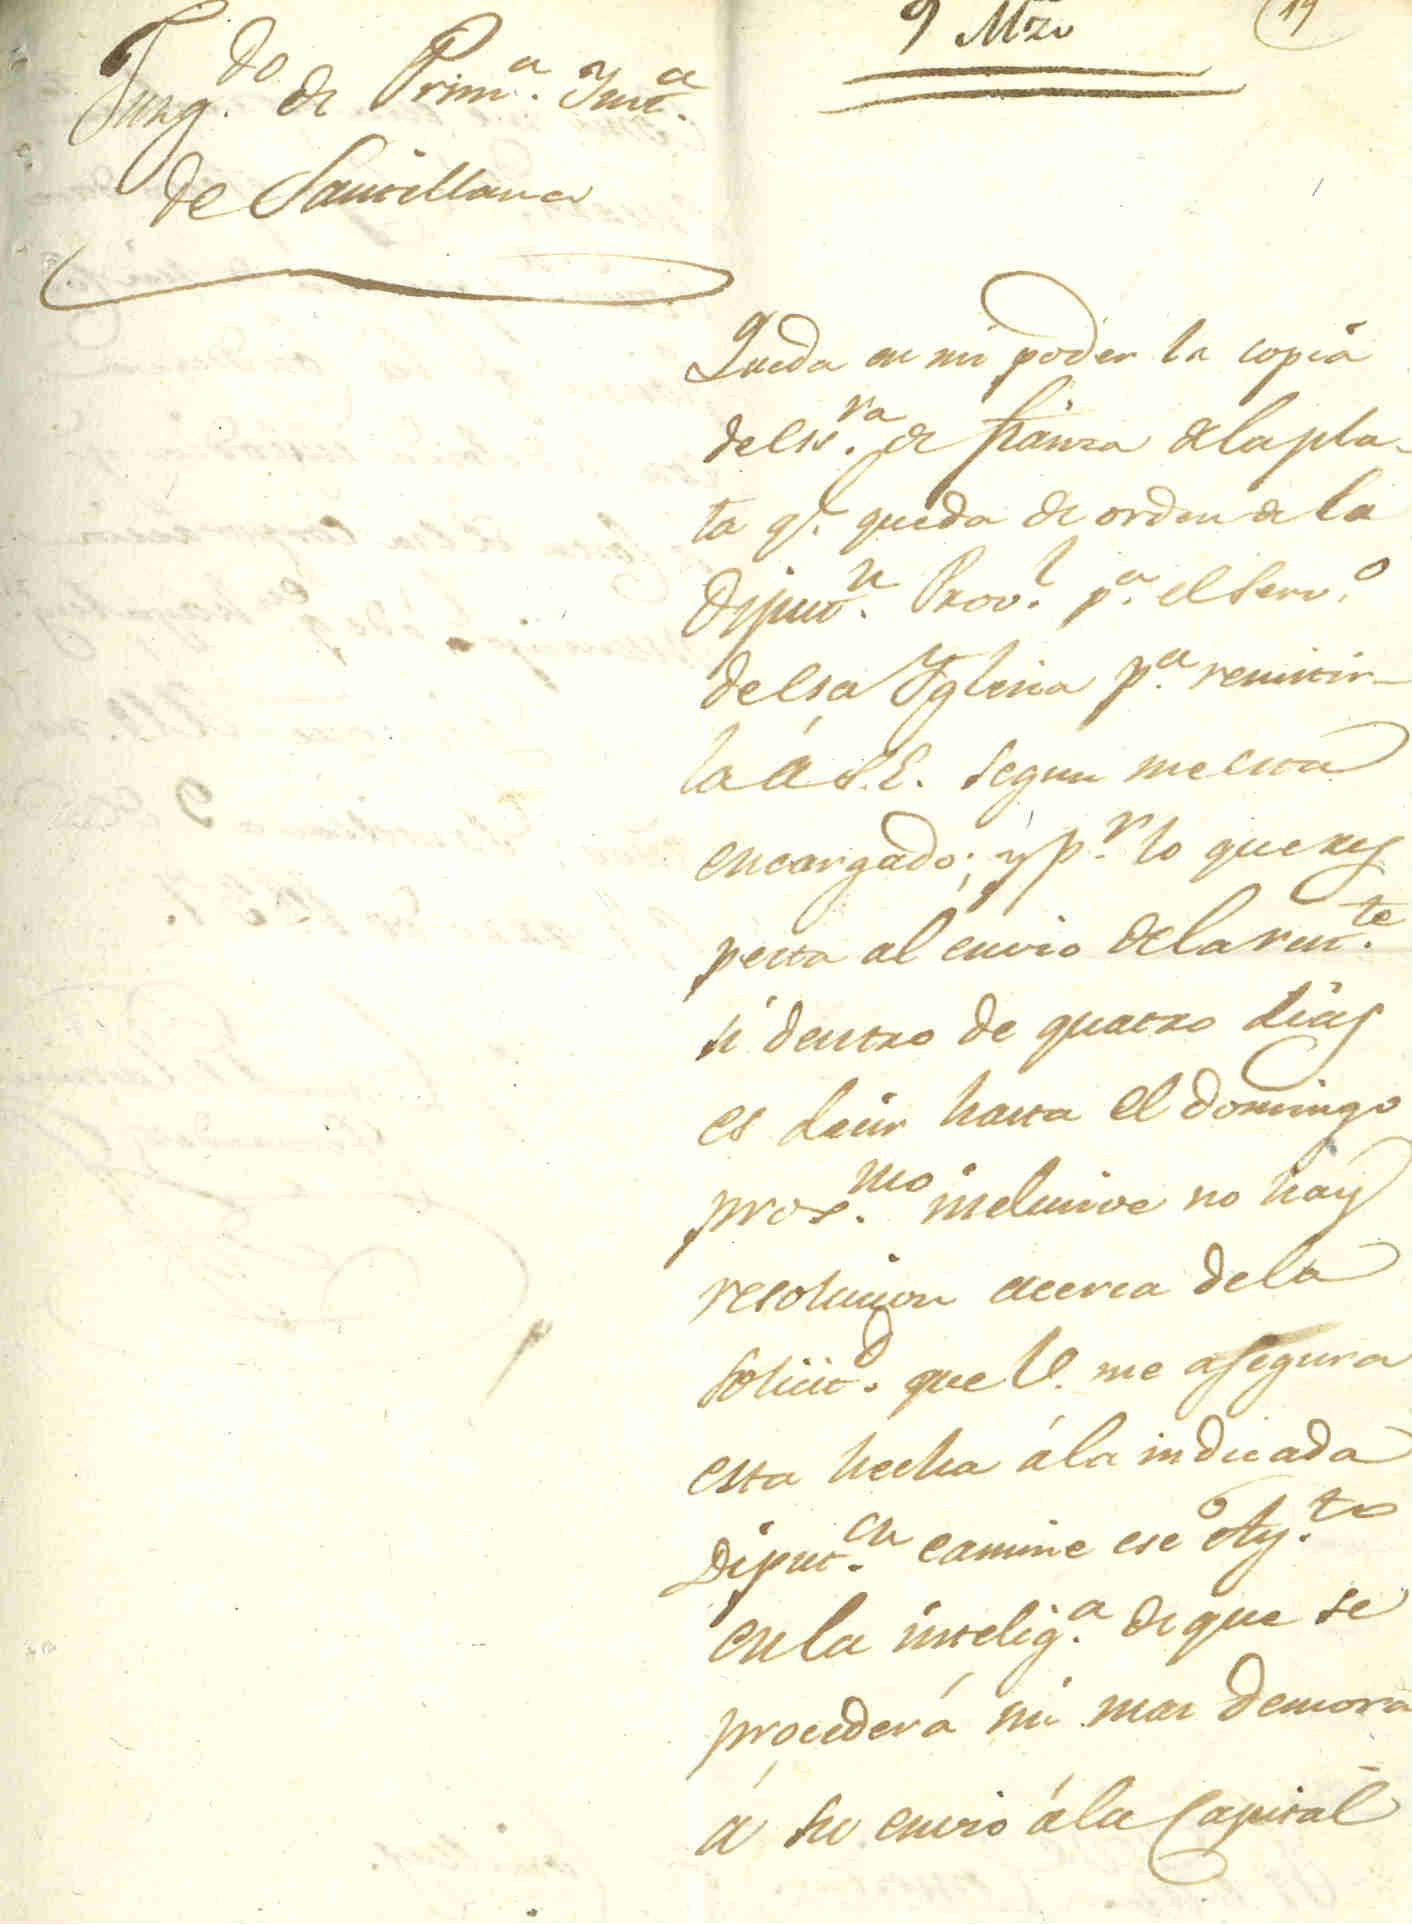 9 Mzo
19
Juzg.do de Prim.a Ynst.a
de Santillana
Queda en mi poder la copia
de lss.ra de fianza de la pla-
ta q.e queda de orden de la
Diput.n Prov.l p.a el Serv.o
de esa Yglesia p.a remitir-
la á S.E. segun me esta
encargado; y p.r lo que res
pecta al envio de la rest.te
si dentro de quatro dias
es decir hasta el domingo
prox.mo inclusive no hay
resolucion acerca de la
solicit.d que V. me asegura
esta hecha á la indicada
Diput.cn camine ese
en la intelig.a de que se
procederá sin mas demora
á su envio á la Capital